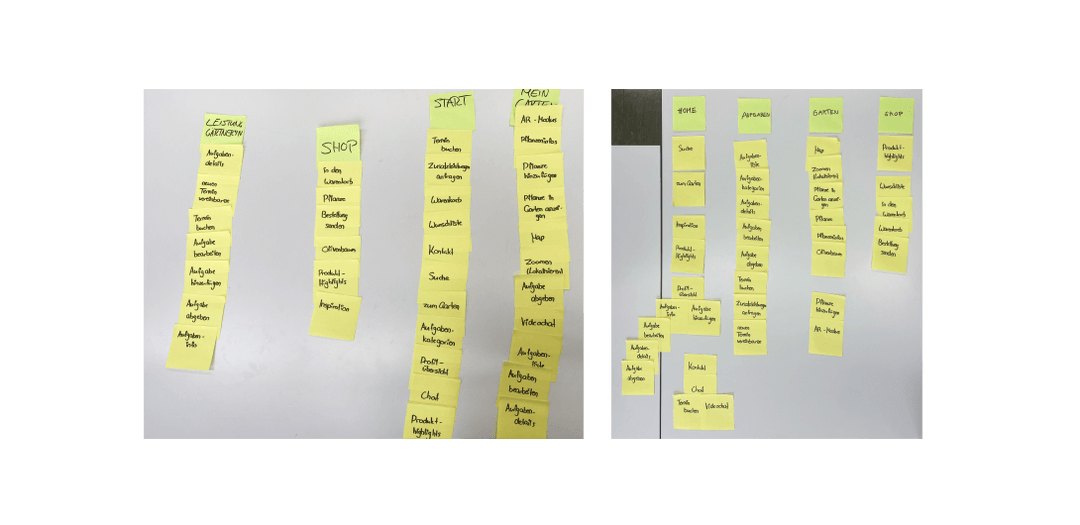 LEISTUNG
GÄRTNER*IN
Aufgaben-
details
neuen
Termin
vereinbaren
Termin
buchen
Aufgabe
bearbeiten
Aufgabe
hinzufügen
Aufgabe
abgeben
Aufgaben-
info
SHOP
In den
Warenkorb
Pflanze
Bestellung
senden
Olivenbaum
Produkt-
Highlights
Inspiration
START
Termin
buchen
Zusatzleistungen
anfragen
Warenkorb
Wunschliste
Kontakt
Suche
zum Garten
Aufgaben-
kategorien
Profil-
übersicht
Chat
Produkt-
highlights
MEIN
GARTEN
AR-Modus
Pflanzeninfos
Pflanze
hinzufügen
Pflanze in
Garten anzei-
gen
Map
Zoomen
(Lokalisieren)
Aufgabe
abgeben
Videochat
Aufgaben-
liste
Aufgaben
bearbeiten
Aufgaben-
details
HOME
Suche
zum Garten
Inspiration
Produkt-
Highlights
Profil-
übersicht
Aufgaben-
info
Aufgabe
hinzufügen
Aufgabe
bearbeiten
Aufgaben-
details
Aufgabe
abgeben
Kontakt
Chat
Termin
buchen
Videochat
AUFGABEN
Aufgaben-
liste
Aufgaben-
kategorien
Aufgaben-
details
Aufgabe
bearbeiten
Aufgabe
abgeben
Termin
buchen
Zusatzleistungen
anfragen
neuen
Termin
vereinbaren
GARTEN
Map
Zoomen
(Lokalisieren)
Pflanze in
Garten anzei-
gen
Pflanze
Pflanzeninfos
Olivenbaum
Pflanze
hinzufügen
AR-Modus
SHOP
Produkt-
Highlights
Wunschliste
In den
Warenkorb
Warenkorb
Bestellung
senden